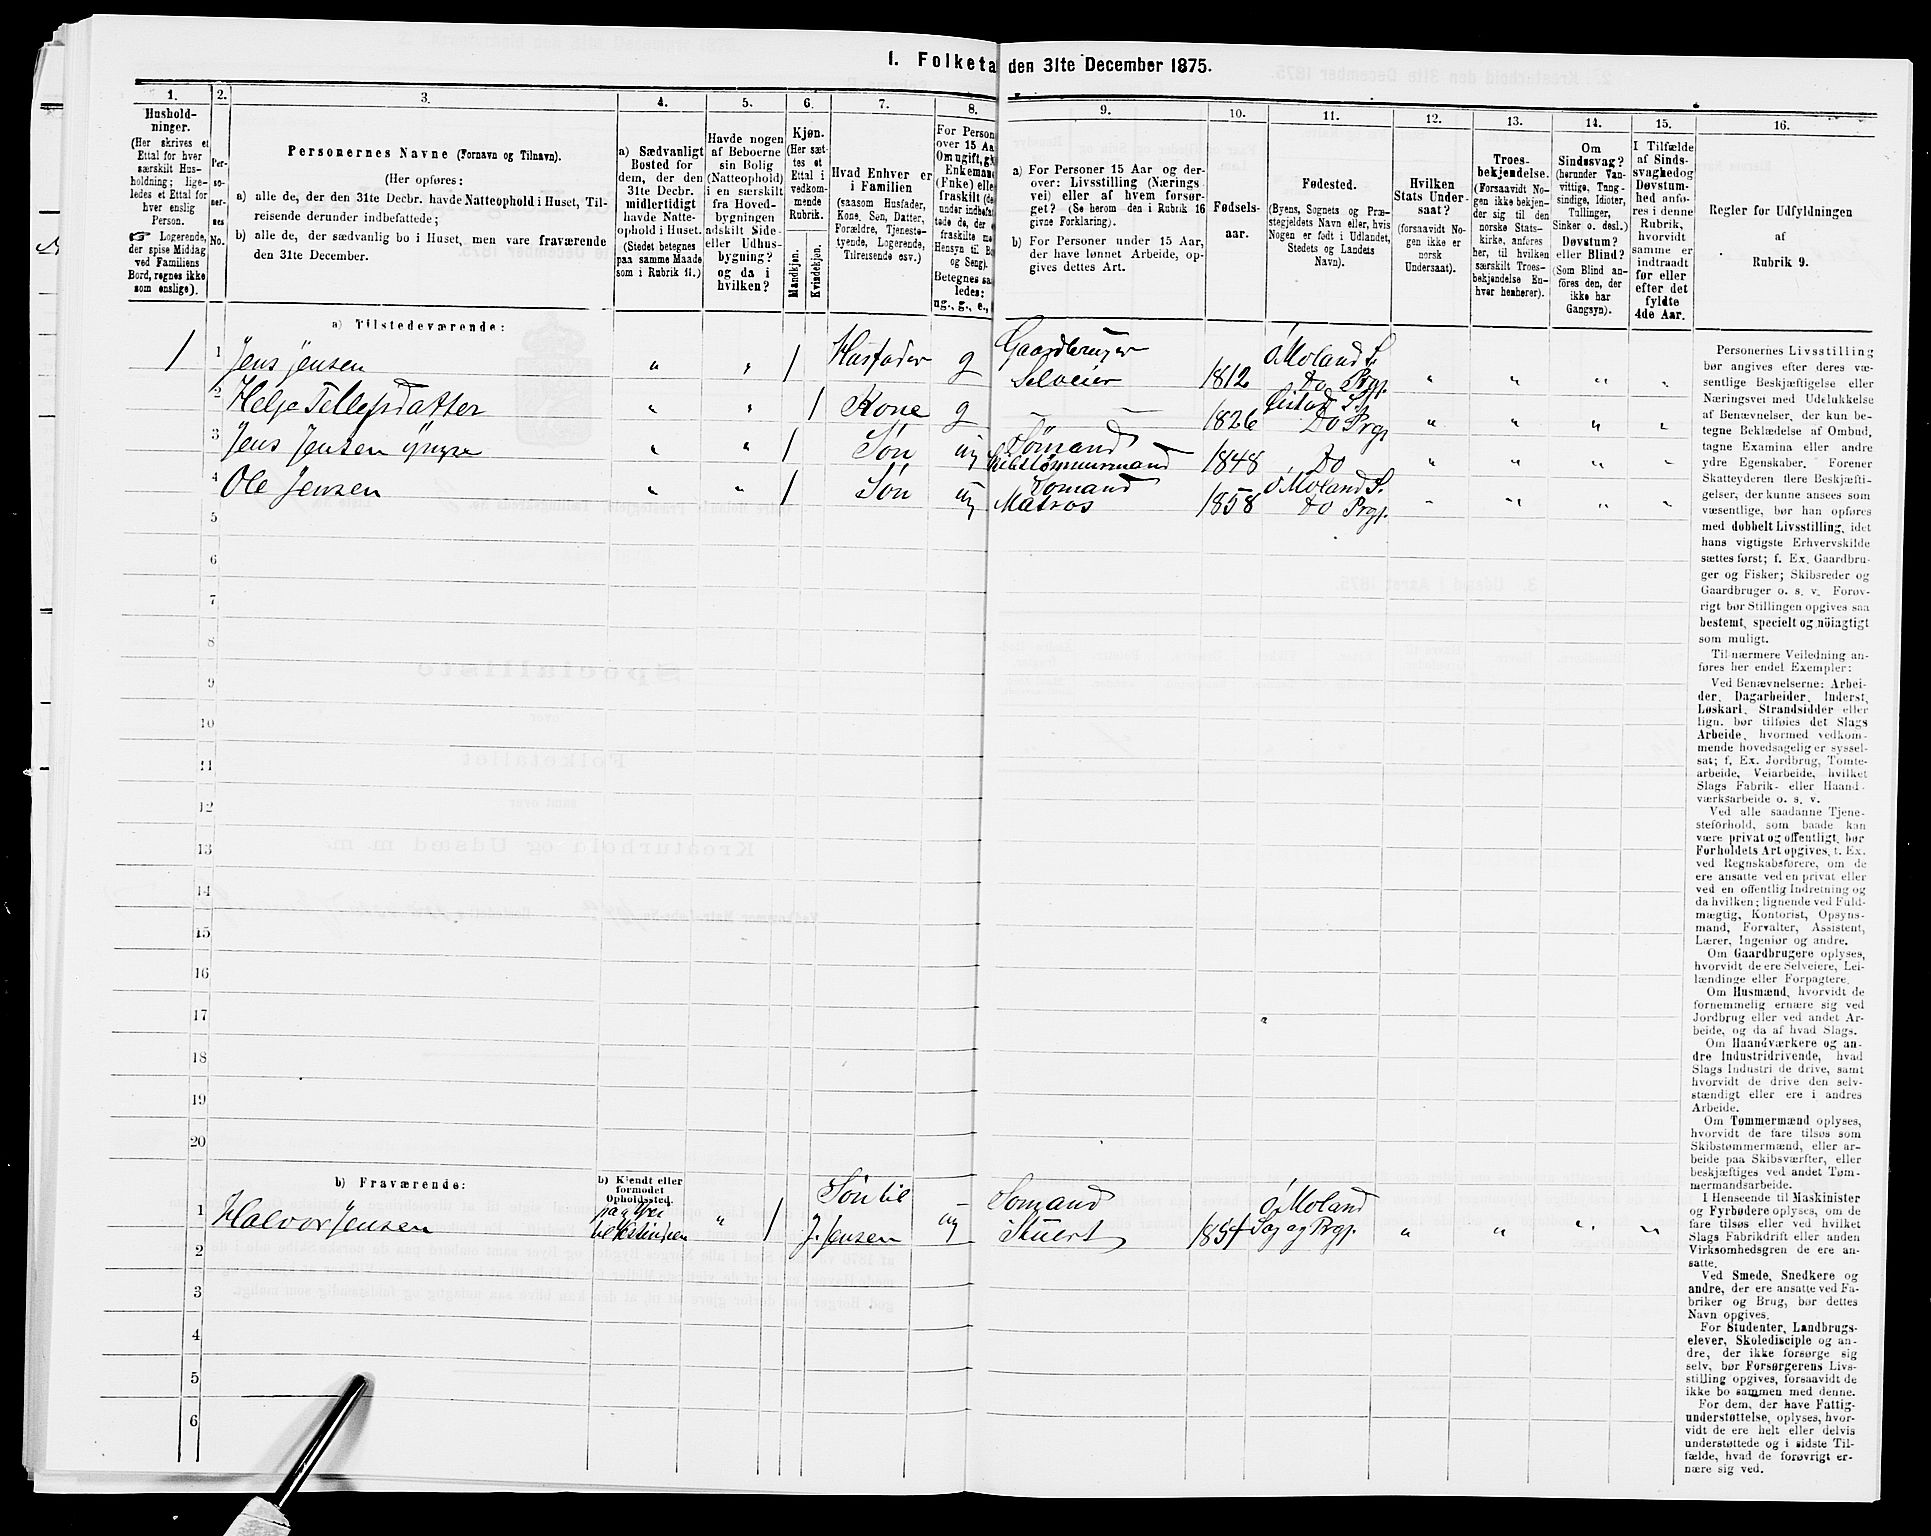 1. Folketa den 31te December 1875.
1. 2. 3. 4. 5. 6. 7. 8. 9. 10. 11. 12. 13. 14. 15. 16.
Hushold-
ninger.
(Her skrives et
Ettal for hver
særskilt Hus-
holdning; lige-
ledes et Ettal for
hver enslig
Person.
Logerende,
der spise Middag
ved Familiens
Bord, regnes ikke
som enslige).
Per-
so-
ner-
nes
No.
Personernes Navne (Fornavn og Tilnavn).
(Her opføres:
a) alle de, der den 31te Decbr. havde Natteophold i Huset, Til-
reisende derunder indbefattede;
b) alle de, der sædvanlig bo i Huset, men vare fraværende
den 31te December.
a) Sædvanligt
Bosted for
dem, der den
31te Decbr.
midlertidigt
havde Natte-
ophold i Huset.
(Stedet betegnes
paa samme Maade
som i Rubrik 11.)
Havde nogen
af Beboerne
sin Bolig
(Natteophold)
i en særskilt
fra Hoved-
bygningen
adskilt Side-
eller Udhus-
bygning?
og da i
hvilken?
Kjøn.
(Her sæt-
tes et
Ettal i
vedkom-
mende
Rubrik.
Mandkjøn.
Kvindekjøn.
Hvad Enhver er
i Familien
(saasom Husfader,
Kone, Søn, Datter,
Forældre, Tjeneste-
tyende, Logerende,
Tilreisende osv.)
For Person
over 15 Aa
Om ugift, gi
Enkeman
(Enke) elle
fraskilt (de
under indbefa
tede de, der e
fraskilte me
Hensyn til Bo
og Seng).
Betegnes saa
ledes:
ug., g., e.,
a) For Personer 15 Aar og der-
over: Livsstilling (Nærings
vei) eller af hvem forsør-
get? (Se herom den i Rubrik 16
givne Forklaring).
b) For Personer under 15 Aar,
der have lønnet Arbeide, op-
gives dettes Art.
Fødsels-
aar.
Fødested.
(Byens, Sognets og Præ-
stegjeldets Navn eller, hvis
Nogen er født i Udlandet,
Stedets og Landets
Navn).
Hvilken
Stats Under-
saat?
(forsaavidt No-
gen ikke er
norsk
Undersaat).
Troes-
bekjendelse.
(Forsaavidt No-
gen ikke bekjen-
der sig til den
norske Stats-
kirke, anføres
her, til hvilken
særskilt Troes-
bekjendelse En-
hver henhører).
Om
Sindssvag?
(herunder Van-
vittige, Tung-
sindige, Idioter,
Tullinger,
Sinker o. desl.)
Døvstum?
eller Blind?
(Som Blind an-
føres den, der
ikke har
Gangsyn).
I Tilfælde
af Sinds-
svaghed og
Døvstum-
hed anfø-
res i denne
Rubrik,
hvorvidt
samme er
indtraadt
før eller
efter det
fyldte
4de Aar.
Regler for Udfyldningen
af
Rubrik 9.
a) Tilstedeværende:
1 1 Jens Jensen „ „ 1 Husfader g Gaardbruger
Selveier 1812 ø Moland S.
Do Prgj. „ „ „ „
2 Helje Tellefsdatter „ „ 1 Kone g — — 1826 S.
Do Prgj „ „ „ „
3 Jens Jensen yngre „ „ 1 Søn ug Sømand
Skibstømmermand 1848 Do „ „ „ „
4 Ole Jensen „ „ 1 Søn ug Somand
Matros 1858 ø Moland S.
Do Prgj. „ „ „ „
5
6
7
8
9
10
11
12
13
14
15
16
17
18
19
20
b) Fraværende:
b) Kjendt eller
formodet
Opholdssted.
1 Halvor Jensen paa Vei
til „ 1 Søn til
J. Jensen ug Somand
Stuert 1854 ø Moland
Sog og Prgj. „ „ „ „
2
3
4
5
6
Personernes Livsstilling
bør angives efter deres væ-
sentlige Beskjæftigelse eller
Næringsvei med Udelukkelse
af Benævnelser, der kun be-
tegne Beklædelse af Ombud,
tagne Examina eller andre
ydre Egenskaber. Forener
Skatteyderen flere Beskjæfti-
gelser, der kunne ansees som
væsentlige, bør han opføres
med dobbelt Livsstilling, idet
hans vigtigste Erhvervskilde
sættes først; f. Ex. Gaardbru-
ger og Fisker; Skibsreder og
Gaardbruger o. s. v. Forøv-
rigt bør Stillingen opgives saa
bestemt, specielt og nöiagtigt
som muligt.
Til nærmere Veiledning an-
føres her endel Exempler:
Ved Benævnelserne: Arbei-
der, Dagarbeider, Inderst,
Løskarl, Strandsidder eller
lign. bør tilføies det Slags
Arbeide, hvormed vedkom-
mende hovedsagelig er syssel-
sat; f. Ex. Jordbrug, Tomte-
arbeide, Veiarbeide, hvilket
Slags Fabrik- eller Haand-
værksarbeide o. s. v.
Ved alle saadanne Tjene-
steforhold, som baade kan
være privat og offentligt, bør
Forholdets Art opgives, f. Ex.
ved Regnskabsførere, om de
ere ansatte ved en privat eller
ved en offentlig Indretning og
da hvilken; lignende ved Fuld-
mægtig, Kontorist, Opsyns-
mand, Forvalter, Assistent,
Lærer, Ingeniør og andre.
Om Gaardbrugere oplyses,
hvorvidt de ere Selveiere, Lei-
lændinge eller Forpagtere.
Om Husmænd, hvorvidt de
fornemmelig ernære sig ved
Jordbrug eller ved andet Ar-
beide, og da af hvad Slags.
Om Haandværkere og an-
dre Industridrivende, hvad
Slags Industri de drive, samt
hvorvidt de drive den selv-
stændigt eller ere i andres
Arbeide.
Om Tømmermænd oplyses,
hvorvidt de fare tilsøs som
Skibstømmermænd, eller ar-
beide paa Skibsværfter, eller
beskjæftiges ved andet Tøm-
mermandsarbeide.
I Henseende til Maskinister
og Fyrbødere oplyses, om de
fare tilsøs eller ved hvilket
Slags Fabrikdrift eller anden
Virksomhedsgren de ere an-
satte.
Ved Smede, Snedkere og
andre, der ere ansatte ved Fa-
briker og Brug, bør dettes
Navn opgives.
For Studenter, Landbrugs-
elever, Skoledisciple og an-
dre, der ikke forsørge sig
selv, bør Forsørgerens Livs-
stilling opgives, forsaavidt de
ikke bo sammen med denne.
For dem, der have Fattig-
understøttelse, oplyses, hvor-
vidt de ere helt eller delvis
understøttede og i sidste Til-
fælde, hvad de forøvrigt er-
nære sig ved.